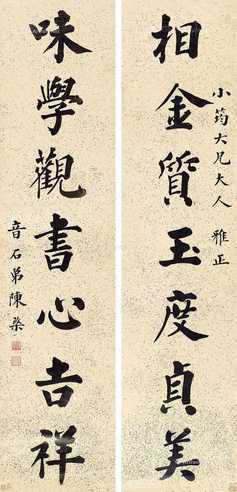 相金質玉度貞美
小筠大兄大人 雅正
味學觀書心吉祥
音石弟陳桑